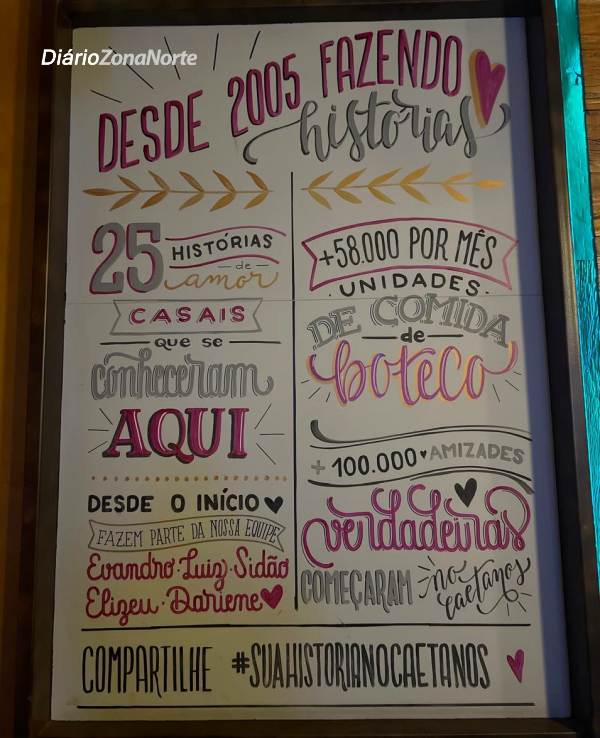 DiárioZonaNorte
DESDE 2005 FAZENDO
histórias
25 HISTÓRIAS
de
amor
CASAIS
QUE SE
conheceram
AQUI
DESDE O INÍCIO
FAZEM PARTE DA NOSSA EQUIPE
Evandro · Luiz · Sidão
Elizeu · Dariene
+58.000 POR MÊS
UNIDADES
DE COMIDA
de
boteco
+ 100.000 AMIZADES
verdadeiras
COMEÇARAM no
caetanos
COMPARTILHE #SUAHISTORIANOCAETANOS